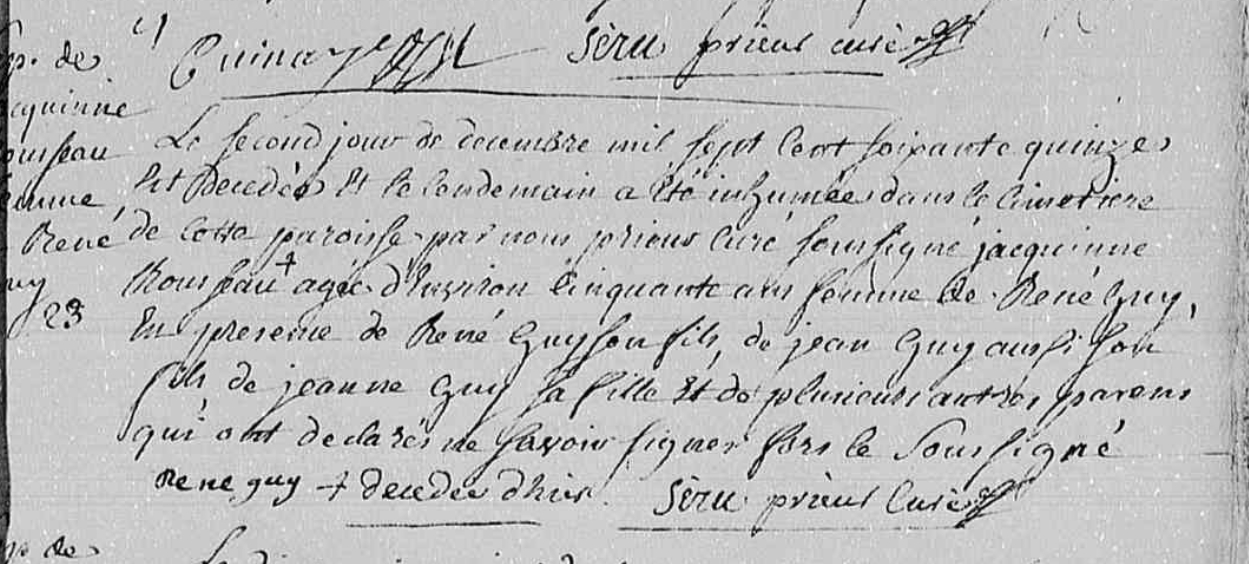 Quinay Séru prieur curé
p. de
cquinne
ousseau
emme
René
uy
23
Le second jour de decembre mil sept Cent soixante quinze
Est decedée Et le lendemain a été inhumée dans le Cimetiere
de cette paroisse par nous prieur Curé soussigné jacquinne
Rousseau + agée d'Environ Cinquante ans femme de René Guy,
En presence de René Guy son fils, de jean Guy aussi son
fils, de jeanne Guy sa fille Et de plusieurs autres parens
qui ont declarés ne savoir signer fors le Soussigné
rene guy + decedée d'hier. Séru prieur Curé
p. de